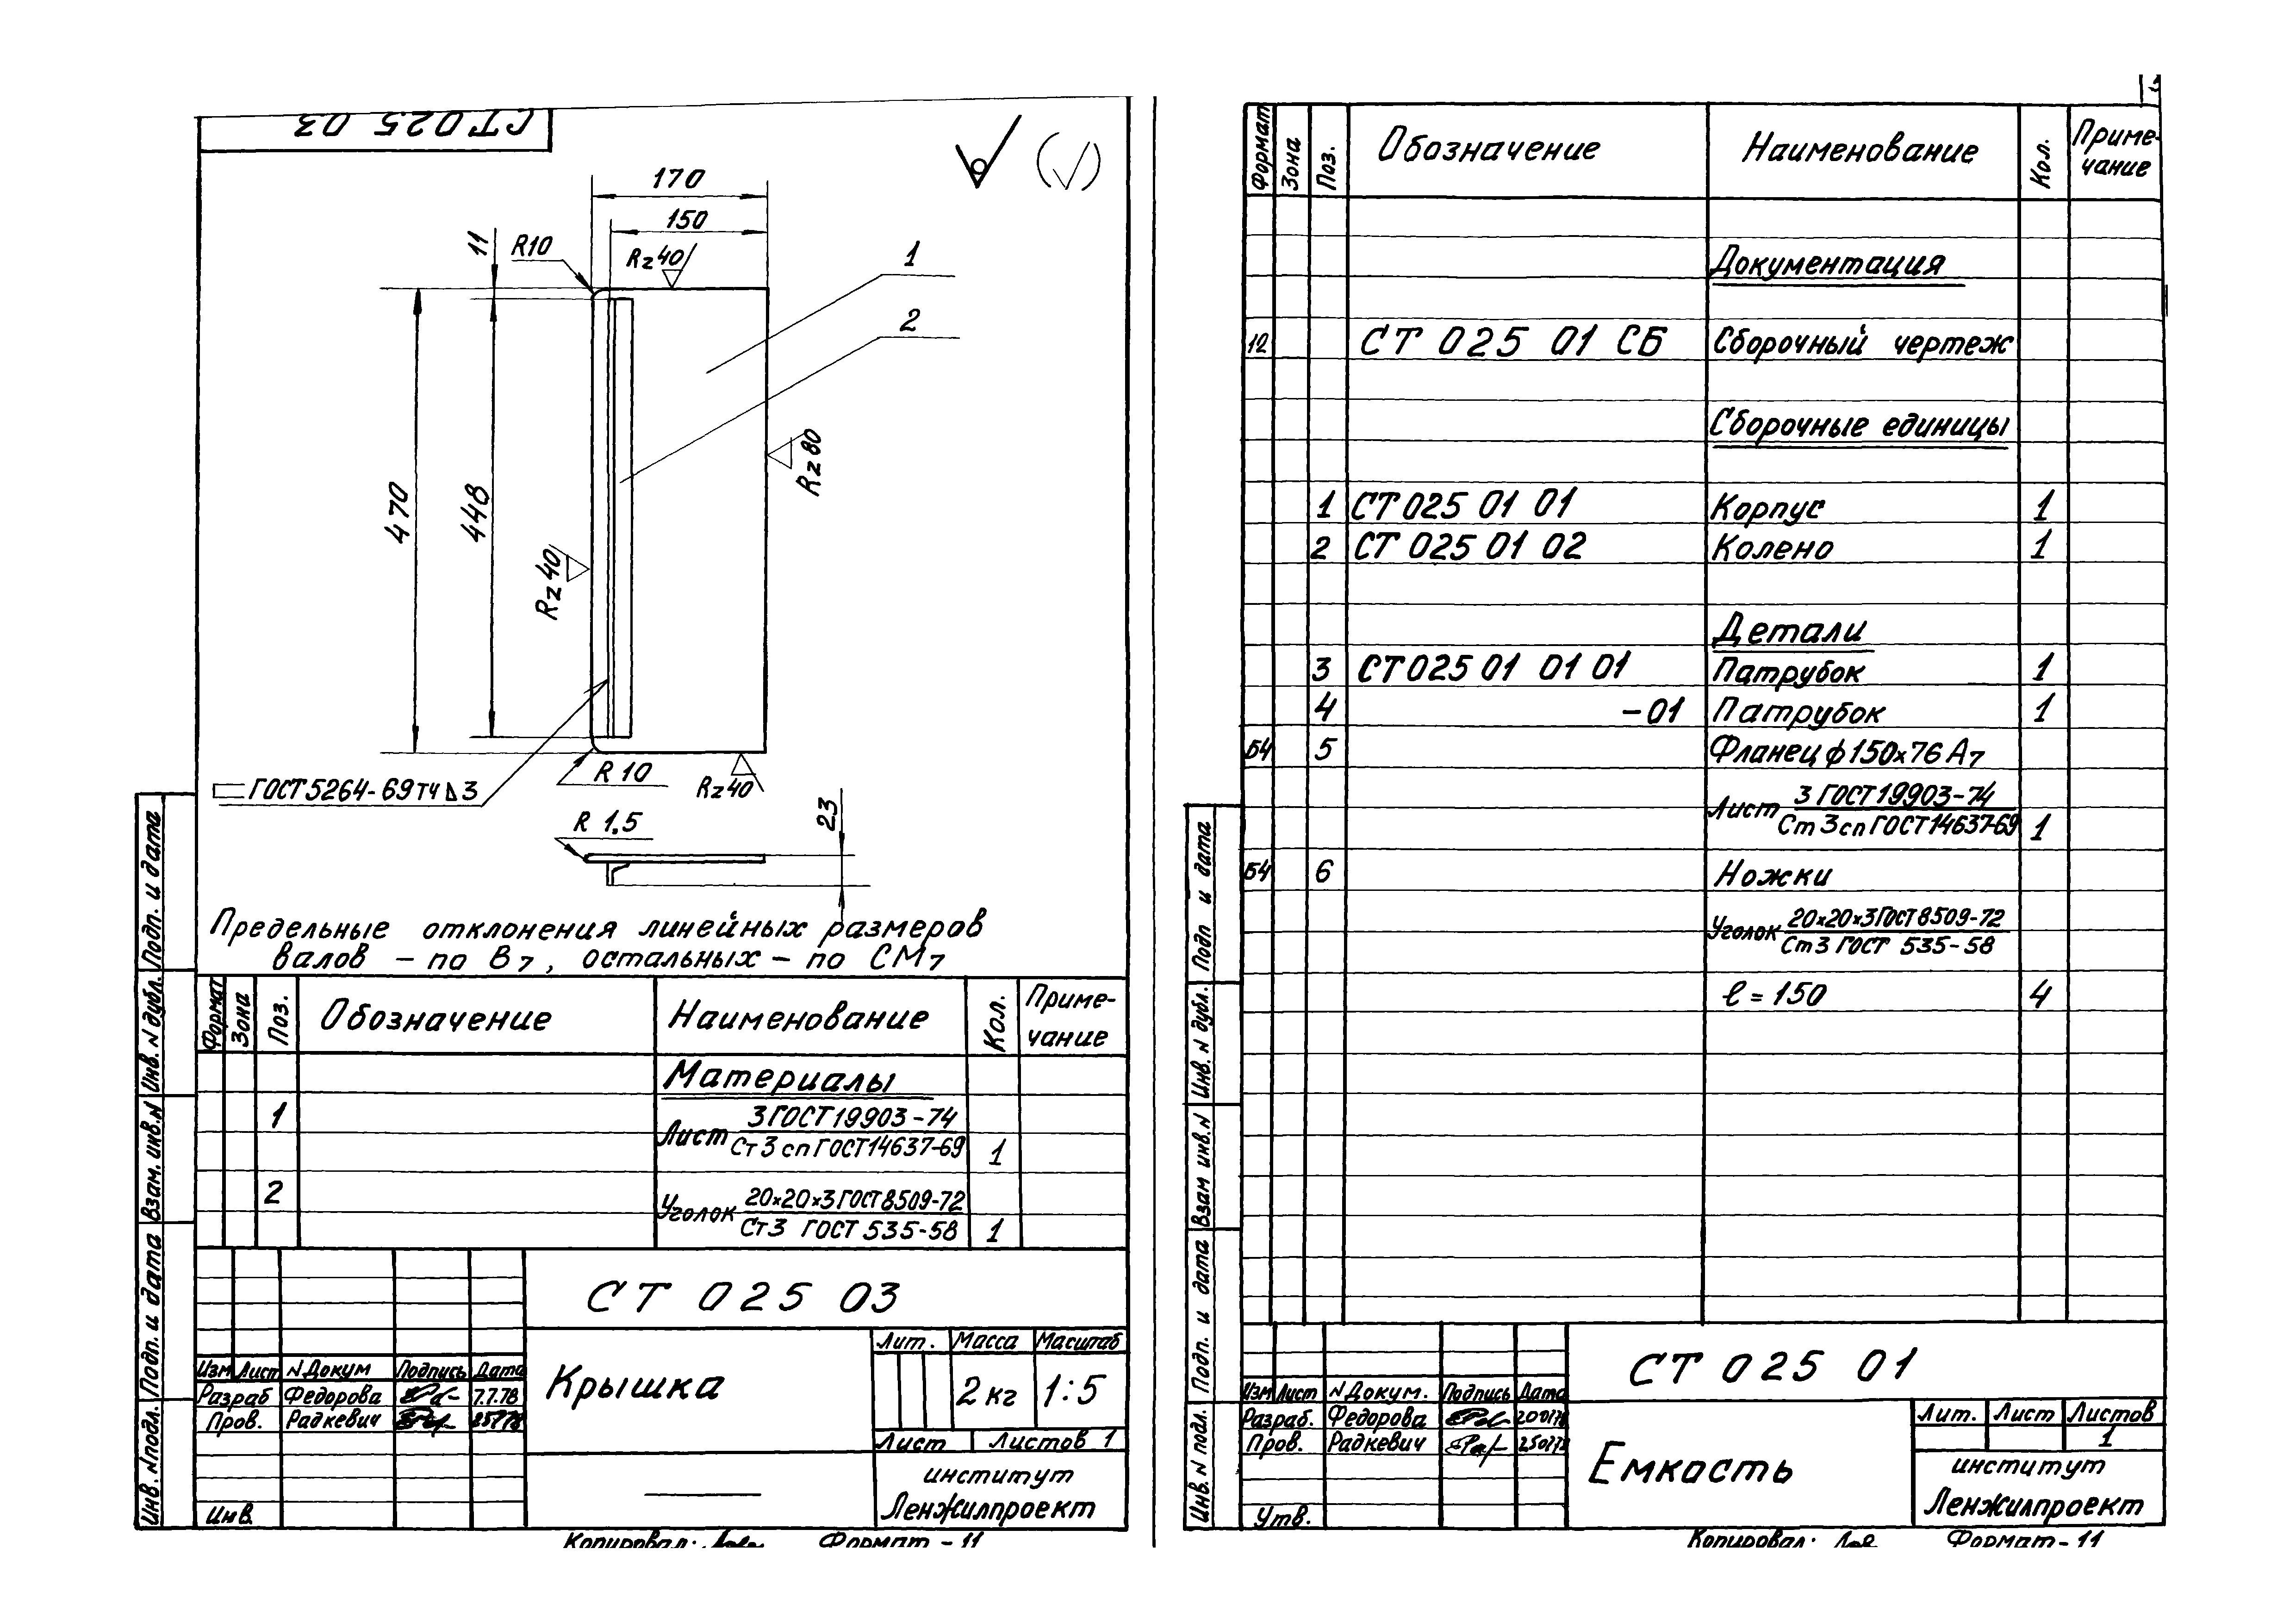 СТ 025 03
170
150
11
R10
Rz 40
1
2
470
448
Rz 80
Rz 40
R 10
Rz 40
ГОСТ 5264-69 ТЧ △ 3
R 1.5
23
Предельные отклонения линейных размеров
валов - по В7, остальных - по СМ7
Формат Зона Поз. Обозначение Наименование Кол. Приме-
чание
Материалы
1 Лист 3 ГОСТ 19903-74
Ст 3 сп ГОСТ 14637-69 1
2 Уголок 20×20×3 ГОСТ 8509-72
Ст 3 ГОСТ 535-58 1
СТ 025 03
Лит. Масса Масштаб
Изм Лист N Докум Подпись Дата
Крышка
2 кг 1:5
Разраб Федорова 7.7.78
Пров. Радкевич
Лист Листов 1
институт
ЛенЖилпроект
Инв.
Копировал: Формат - 11
Подп. и дата
Инв. N дубл.
Взам. инв. N
Подп. и дата
Инв. N подл.
Формат Зона Поз. Обозначение Наименование Кол. Приме-
чание
Документация
12 СТ 025 01 СБ Сборочный чертеж
Сборочные единицы
1 СТ 025 01 01 Корпус 1
2 СТ 025 01 02 Колено 1
Детали
3 СТ 025 01 01 01 Патрубок 1
4 -01 Патрубок 1
Б4 5 Фланец ф 150×76 А7
Лист 3 ГОСТ 19903-74
Ст 3 сп ГОСТ 14637-69 1
Б4 6 Ножки
Уголок 20×20×3 ГОСТ 8509-72
Ст 3 ГОСТ 535-58
ℓ = 150 4
СТ 025 01
Изм Лист N Докум. Подпись Дата
Разраб. Федорова
Пров. Радкевич
Емкость
Лит. Лист Листов
1
институт
ЛенЖилпроект
Утв.
Копировал: Формат - 11
Подп и дата
Инв. N дубл.
Взам инв. N
Подп. и дата
Инв. N подл.